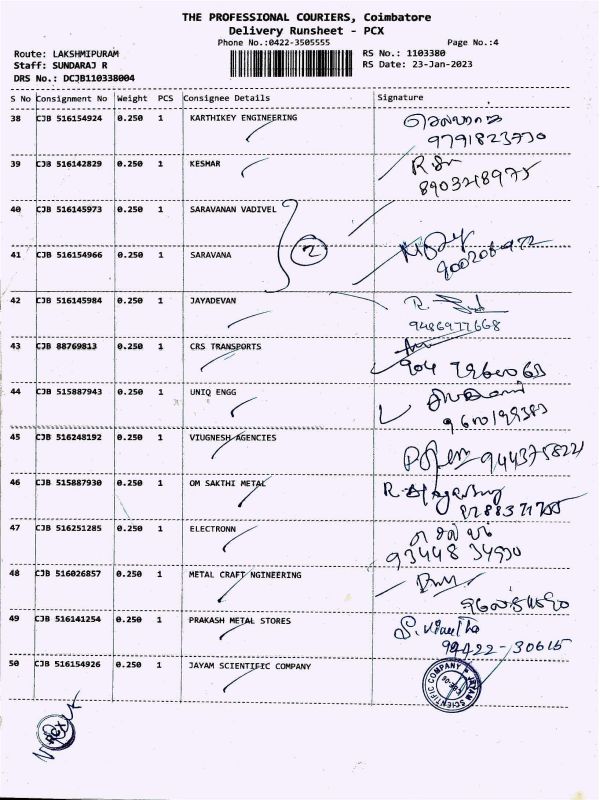 THE PROFESSIONAL COURIERS, Coimbatore
Delivery Runsheet - PCX
Phone No.:0422-3505555 Page No.:4
Route: LAKSHMIPURAM RS No.: 1103380
Staff: SUNDARAJ R RS Date: 23-Jan-2023
DRS No.: DCJB110338004
S No Consignment No Weight PCS Consignee Details Signature
38 CJB 516154924 0.250 1 KARTHIKEY ENGINEERING
9791823770
39 CJB 516142829 0.250 1 KESHAR
8903218975
40 CJB 516145973 0.250 1 SARAVANAN VADIVEL
2
41 CJB 516154966 0.250 1 SARAVANA
42 CJB 516145984 0.250 1 JAYADEVAN
9486977668
43 CJB 88769813 0.250 1 CRS TRANSPORTS
44 CJB 515887943 0.250 1 UNIQ ENGG
45 CJB 516248192 0.250 1 VIUGNESH AGENCIES
9443758221
46 CJB 515887930 0.250 1 OM SAKTHI METAL
47 CJB 516251285 0.250 1 ELECTRONN
48 CJB 516026857 0.250 1 METAL CRAFT NGINEERING
49 CJB 516141254 0.250 1 PRAKASH METAL STORES
94422-30615
50 CJB 516154926 0.250 1 JAYAM SCIENTIFIC COMPANY
JAYAM SCIENTIFIC COMPANY
PCX